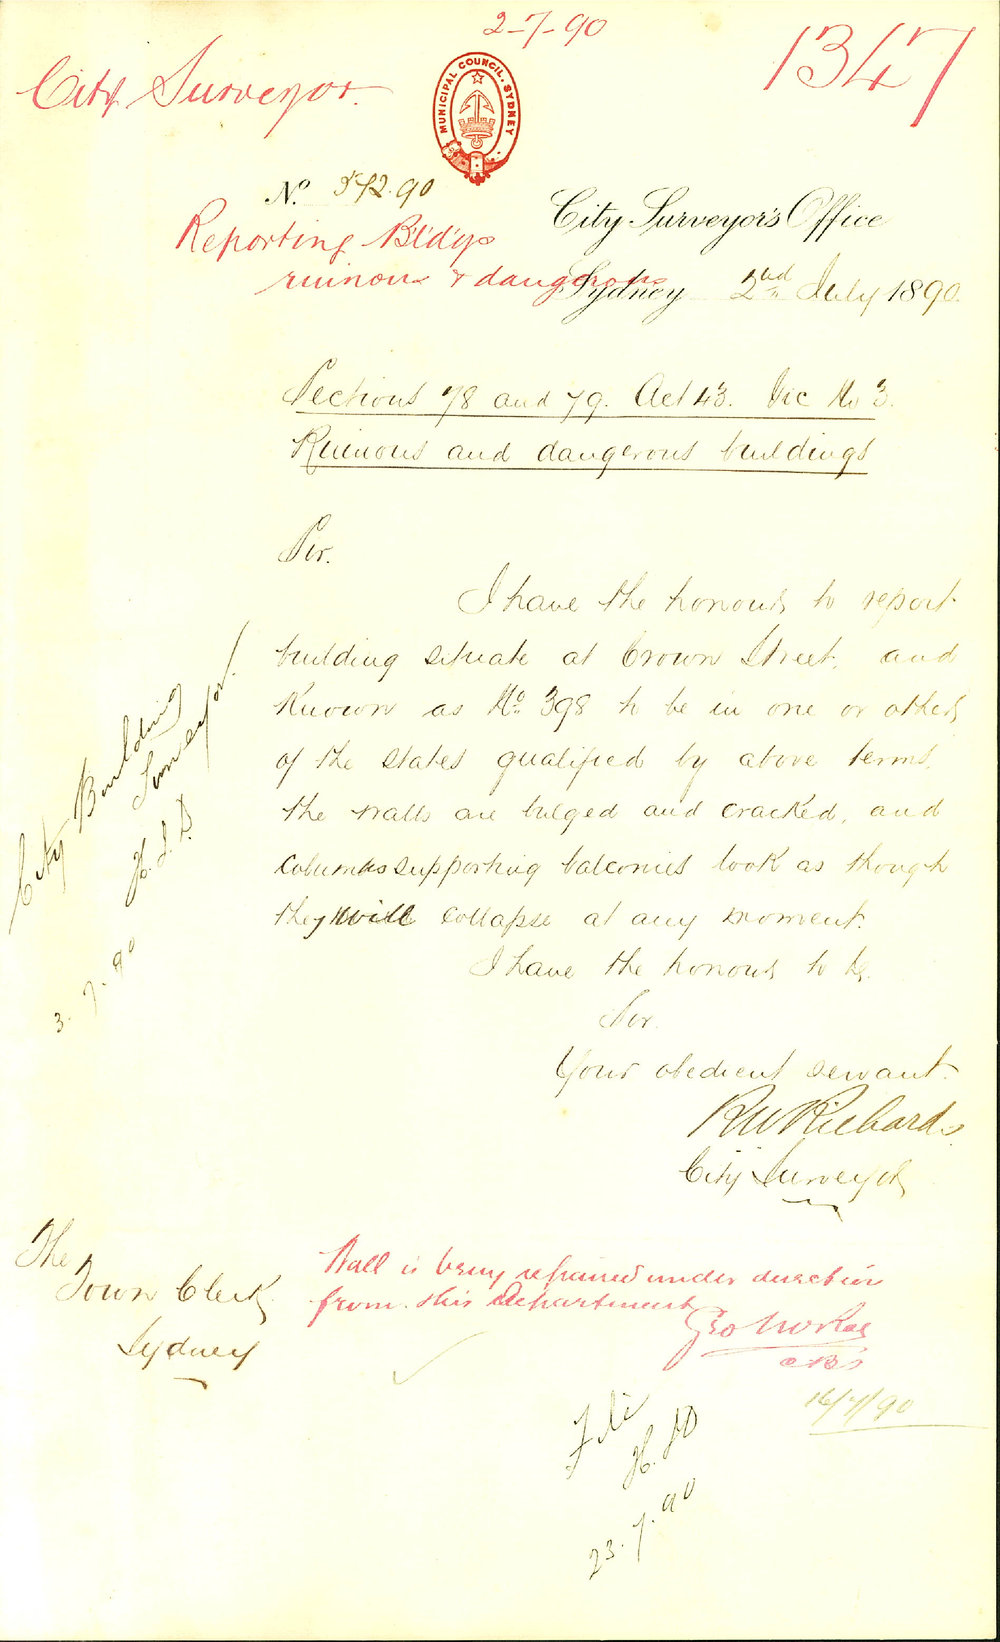 2-7-90
1347
City Surveyor
MUNICIPAL COUNCIL, SYDNEY
No. 372.90
City Surveyor's Office
Reporting Bldgs
ruinous & dangerous
Sydney 2nd July 1890.
Sections 78 and 79. Act 43. Vic No 3.
Ruinous and dangerous buildings
Sir.
I have the honour to report
building situate at Crown Street, and
known as No. 398 to be in one or other
of the states qualified by above terms.
the walls are bulged and cracked, and
columns supporting balconies look as though
they will collapse at any moment.
I have the honour to be.
Sir.
Your obedient servant.
RW Richards
City Surveyor
City Building
Surveyor.
H.S.D
3.7.90
The
Town Clerk
Sydney
Wall is being repaired under direction
from this Department
Geo McRae
16/7/90
File
H.SD
23.7.90